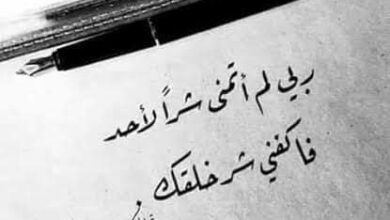 ربي لم أتمنى شراً لأحد
فاكفني شر خلقك